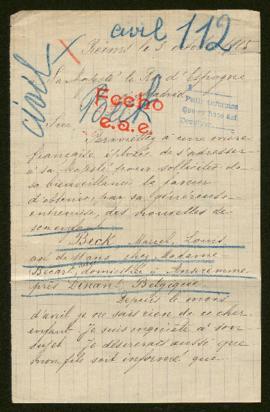 civil 112
civil X
Reims le 3
Sa Majesté le Roi d'Espagne
Madrid
Fecho
e.a.e.
Sire
Permettez à une mère
française de s'adresser
à sa Majesté pour solliciter de
sa bienveillance la faveur
d'obtenir, par sa généreuse
entremise, des nouvelles de
Beck Marcel, Louis
chez Madame
Bécart, domiciliée à Anseremme
près Dinant Belgique
Depuis le mois
d'avril je ne sais rien de ce cher
enfant je suis inquiète à son
sujet je désirerais aussi que
mon fils soit informé que